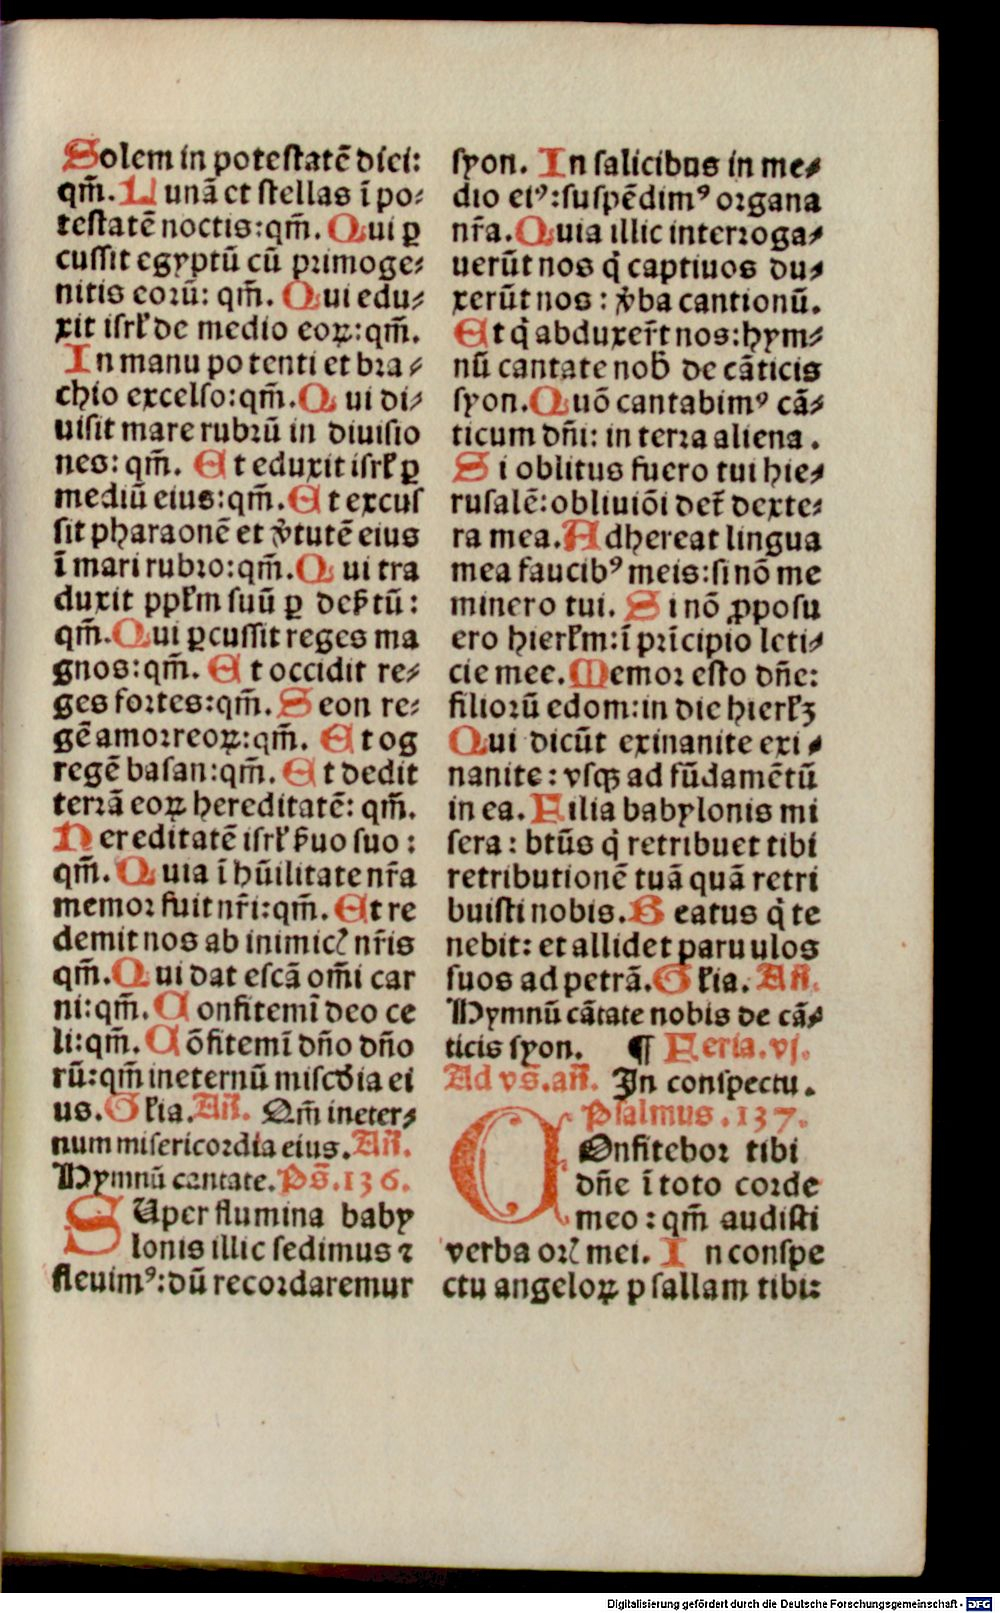 Solem in potestatē diei:
qm̄. Lunā et stellas ī po⸗
testatē noctis:qm̄. Qui ꝑ
cussit egyptū cū primoge⸗
nitis eorū: qm̄. Qui edu⸗
xit isrł de medio eoꝝ:qm̄.
In manu potenti et bra⸗
chio excelso:qm̄. Qui di⸗
uisit mare rubrū in diuisio
nes: qm̄. Et eduxit isrł ꝑ
mediū eius:qm̄. Et excus
sit pharaonē et v̾tutē eius
ī mari rubro:qm̄. Qui tra
duxit ppłm suū ꝑ deẜtū:
qm̄. Qui ꝑcussit reges ma
gnos:qm̄. Et occidit re⸗
ges fortes:qm̄. Seon re⸗
gē amorreoꝝ:qm̄. Et og
regē basan:qm̄. Et dedit
terrā eoꝝ hereditatē: qm̄.
Hereditatē isrł ẜuo suo:
qm̄. Quia ī hūilitate nr̄a
memor fuit nr̄i:qm̄. Et re
demit nos ab inimicꝭ nr̄is
qm̄. Qui dat escā om̄i car
ni:qm̄. Confitemī deo ce
li:qm̄. Cōfitemī dn̄o dn̄o
rū:qm̄ ineternū miscd̾ia ei
us. Głia. Añ. Qm̄ ineter⸗
num misericordia eius. Añ.
Hymnū cantate. Ps̄.136.
SUper flumina baby
lonis illic sedimus ⁊
fleuimꝰ:dū recordaremur
syon. In salicibus in me⸗
dio eiꝰ:suspēdimꝰ organa
nr̄a. Quia illic interroga⸗
uerūt nos q̇ captiuos du⸗
xerūt nos: v̾ba cantionū.
Et q̇ abduxer̄t nos:hym⸗
nū cantate nob̄ de cāticis
syon. Quō cantabimꝰ cā⸗
ticum dn̄i: in terra aliena.
Si oblitus fuero tui hie⸗
rusalē:obliuiōi det̄ dexte⸗
ra mea. Adhereat lingua
mea faucibꝰ meis:si nō me
minero tui. Si nō ꝓposu
ero hierłm:ī prīcipio leti⸗
cie mee. Memor esto dn̄e:
filiorū edom:in die hierłꝫ
Qui dicūt exinanite exi⸗
nanite: vsqꝫ ad fūdamētū
in ea. Filia babylonis mi
sera: btūs q̇ retribuet tibi
retributionē tuā quā retri
buisti nobis. Beatus q̇ te
nebit: et allidet paruulos
suos ad petrā. Głia. Añ.
Hymnū cātate nobis de cā⸗
ticis syon. ¶ Feria.vj.
Ad vs̄.añ. In conspectu.
Psalmus.137.
COnfitebor tibi
dn̄e ī toto corde
meo: qm̄ audisti
verba orꝭ mei. In conspe
ctu angeloꝝ psallam tibi:
Digitalisierung gefördert durch die Deutsche Forschungsgemeinschaft - DFG